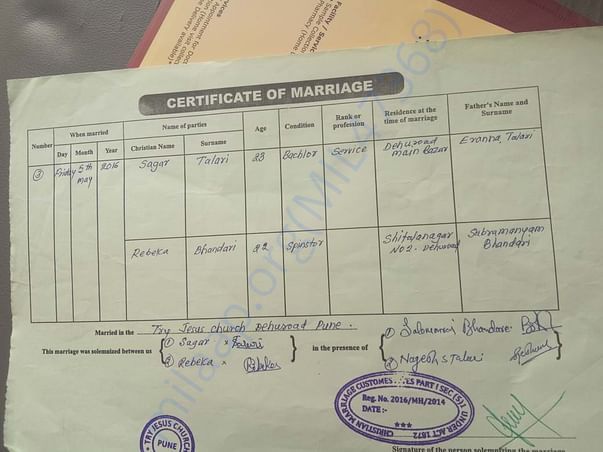 Facility / Servic
Sample Collection
Pharmacy (Home
Appointment for Doc
(Home visit collec
Delivery available)
CERTIFICATE OF MARRIAGE
Number When married Name of parties Age Condition Rank or profession Residence at the time of marriage Father's Name and Surname
Day Month Year Christian Name Surname
3 Friday 5th may 2016 Sagar Talari 23 Bachlor Service Dehuroad main Bazar Eranna Talari
Rebeka Bhandari 22 Spinstor Shitalanagar No2. Dehuroad Subramanyam Bhandari
Married in the Try Jesus church Dehuroad Pune.
This marriage was solemnized between us
1) Sagar x Talari
2) Rebeka x Rebeka
in the presence of
1) Salomani Bhandare.
2) Nagesh S Talari
CHRISTIAN MARRIAGE CUSTOMES PART / SEC (5) UNDER ACT 1872
Reg. No. 2016/MH/2014
DATE :-
***
TRY JESUS CHURCH
PUNE
Signature of the person solemnizing the marriage
milaap.org